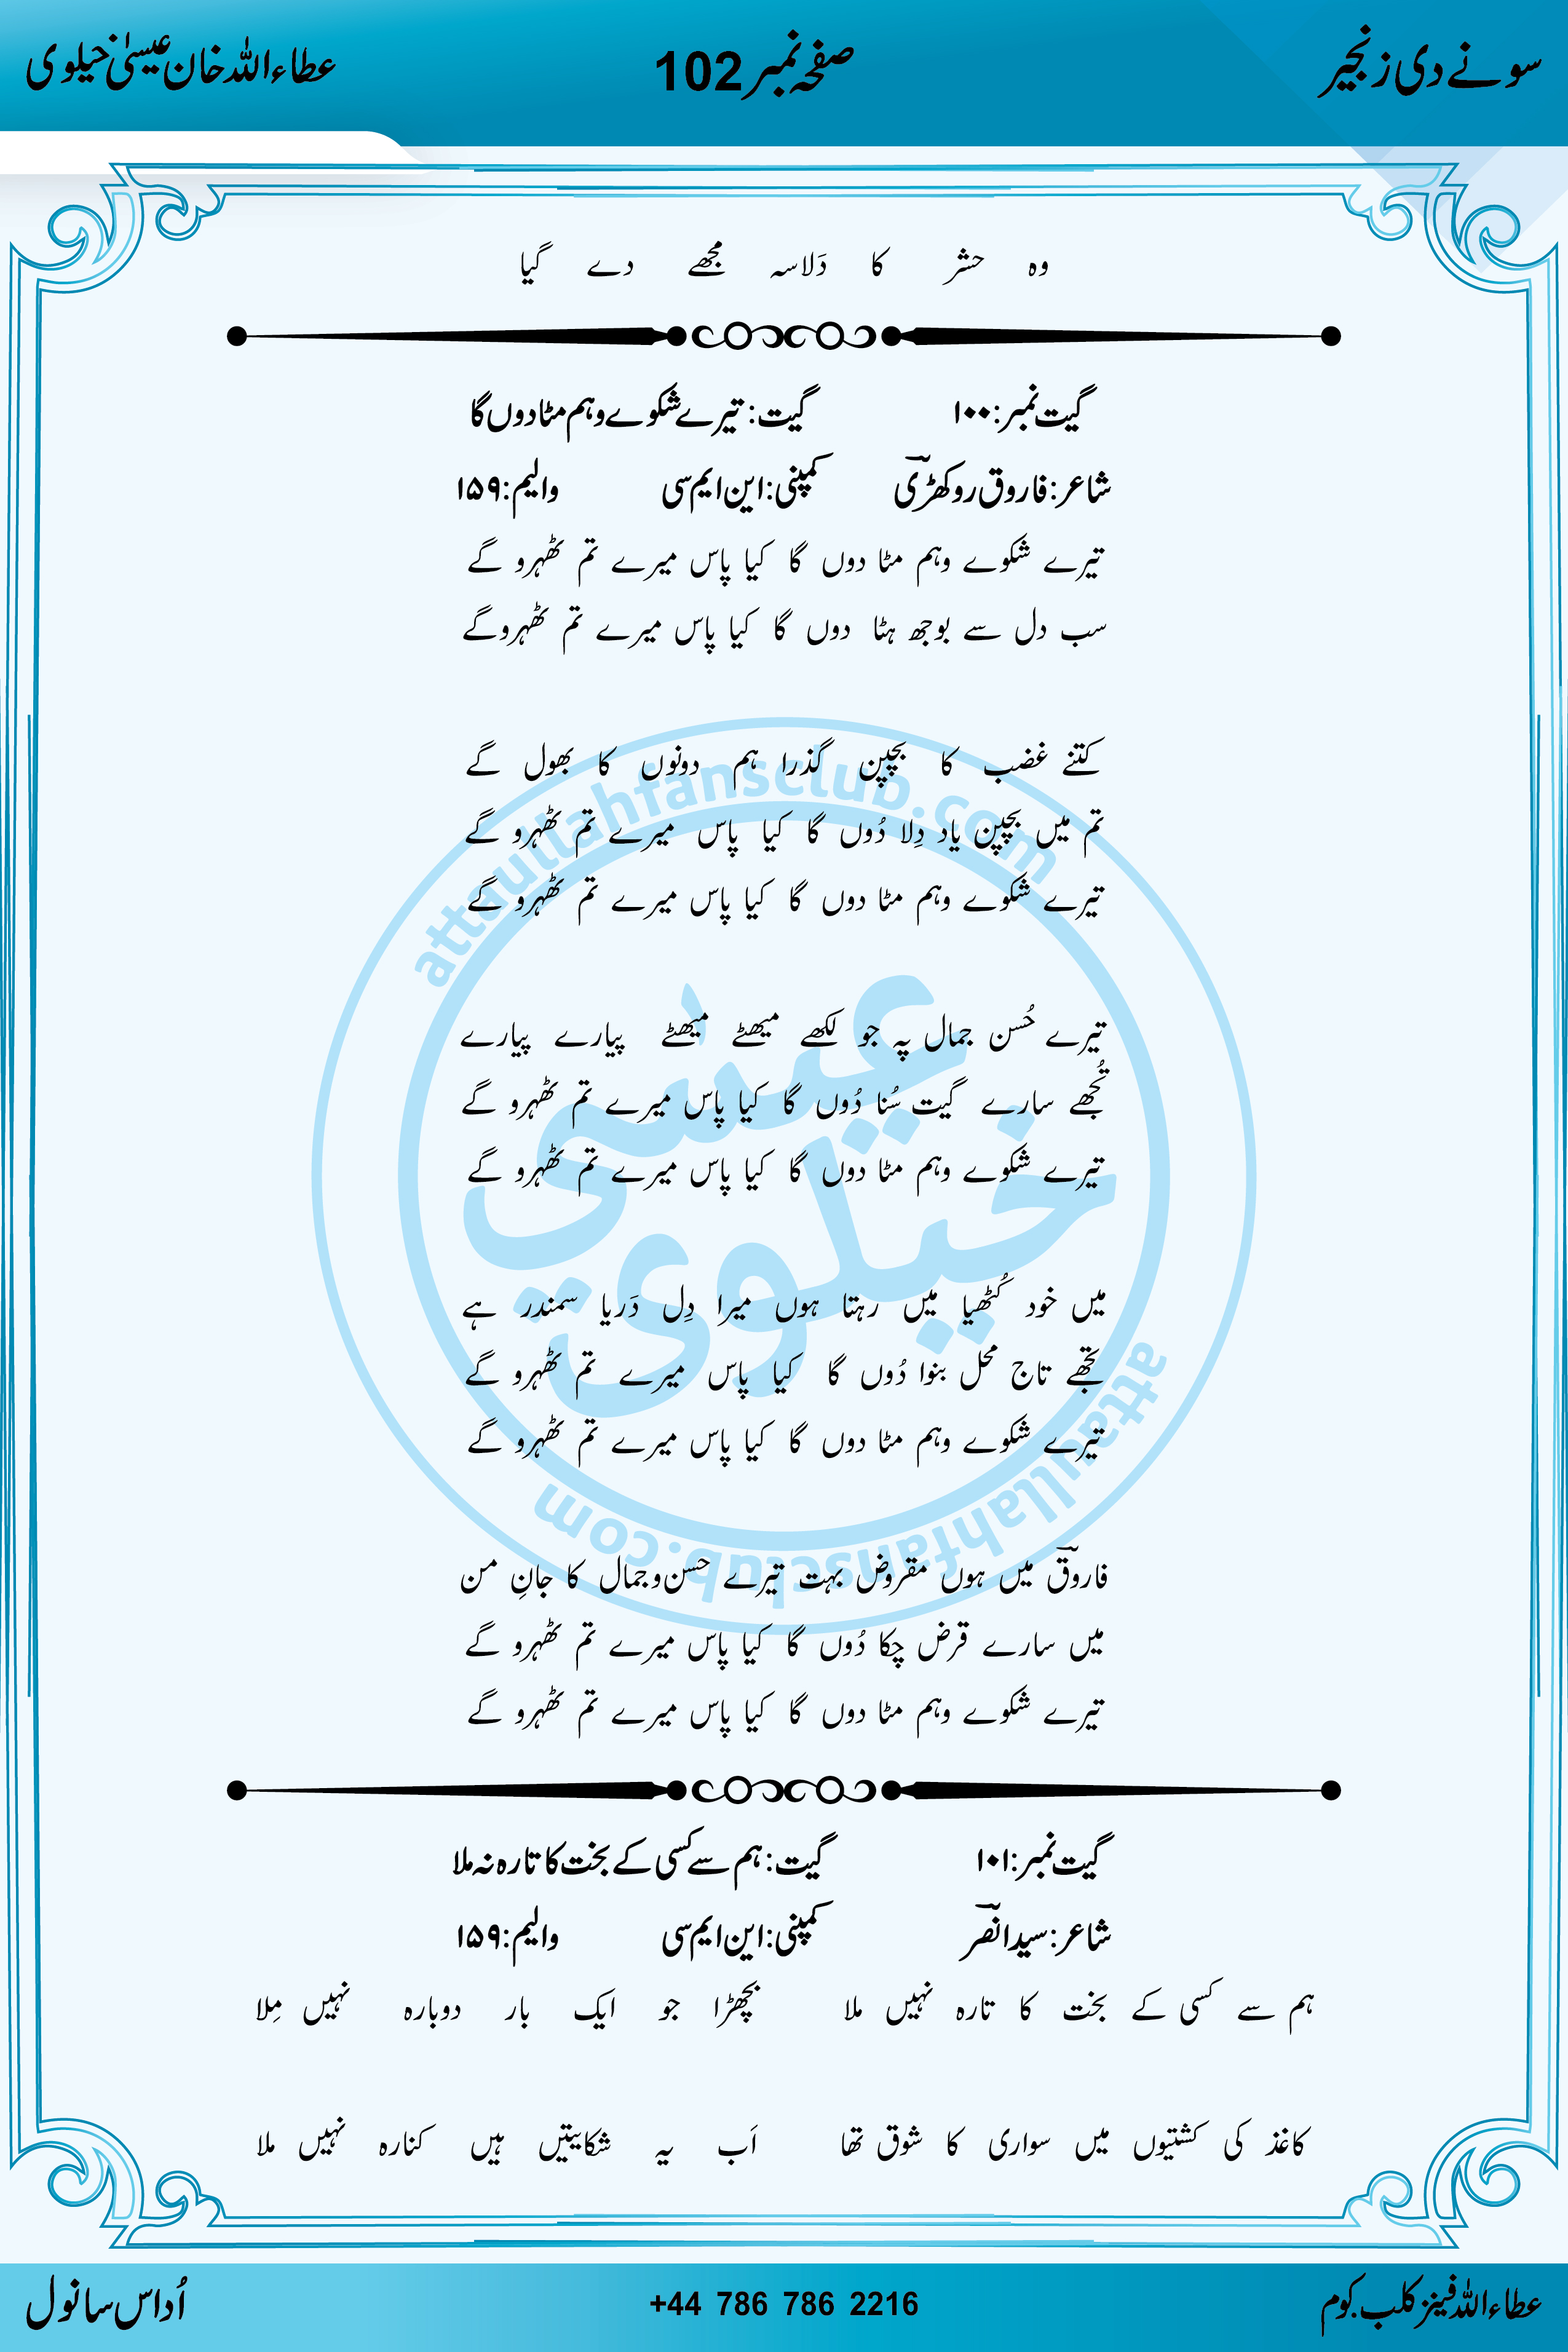 سونے دی زنجیر صفحہ نمبر 102 عطاءاللہ خان عیسیٰ خیلوی
وہ حشر کا دَلاسہ مجھے دے گیا
گیت نمبر: ۱۰۰ گیت: تیرے شکوے وہم مٹا دوں گا
شاعر: فاروق روکھڑیؔ کمپنی: این ایم سی والیم: ۱۵۹
تیرے شکوے وہم مٹا دوں گا کیا پاس میرے تم ٹھہرو گے
سب دل سے بوجھ ہٹا دوں گا کیا پاس میرے تم ٹھہروگے
کتنے غضب کا بچپن گذرا ہم دونوں کا بھول گے
تم میں بچپن یاد دِلا دُوں گا کیا پاس میرے تم ٹھہرو گے
تیرے شکوے وہم مٹا دوں گا کیا پاس میرے تم ٹھہرو گے
تیرے حُسن جمال پہ جو لکھے میٹھے میٹھے پیارے پیارے
تُجھے سارے گیت سُنا دُوں گا کیا پاس میرے تم ٹھہرو گے
تیرے شکوے وہم مٹا دوں گا کیا پاس میرے تم ٹھہرو گے
میں خود کُٹھیا میں رہتا ہوں میرا دِل دَریا سمندر ہے
تجھے تاج محل بنوا دُوں گا کیا پاس میرے تم ٹھہرو گے
تیرے شکوے وہم مٹا دوں گا کیا پاس میرے تم ٹھہرو گے
فاروقؔ میں ہوں مقروض بہت تیرے حسن و جمال کا جانِ من
میں سارے قرض چکا دُوں گا کیا پاس میرے تم ٹھہرو گے
تیرے شکوے وہم مٹا دوں گا کیا پاس میرے تم ٹھہرو گے
گیت نمبر: ۱۰۱ گیت: ہم سے کسی کے بخت کا تارہ نہ ملا
شاعر: سید انصرؔ کمپنی: این ایم سی والیم: ۱۵۹
ہم سے کسی کے بخت کا تارہ نہیں ملا بچھڑا جو ایک بار دوبارہ نہیں مِلا
کاغذ کی کشتیوں میں سواری کا شوق تھا اَب یہ شکایتیں ہیں کنارہ نہیں ملا
attaullahfansclub.com
عیسٰی
خیلوی
attaullahfansclub.com
عطاءاللہ فینز کلب.کوم +44 786 786 2216 اُداس سانول